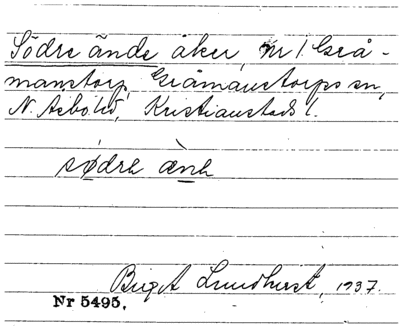 Södre ände åker, nr 1 Grå-
manstorp, Gråmanstorps sn,
N. Åsbo hd, Kristianstads l.
södre ænə
Birgit Lundhurst, 1937.
Nr 5495.